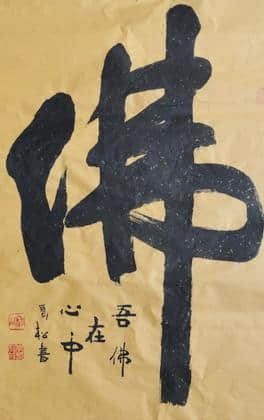 佛
吾佛
在
心中
松書